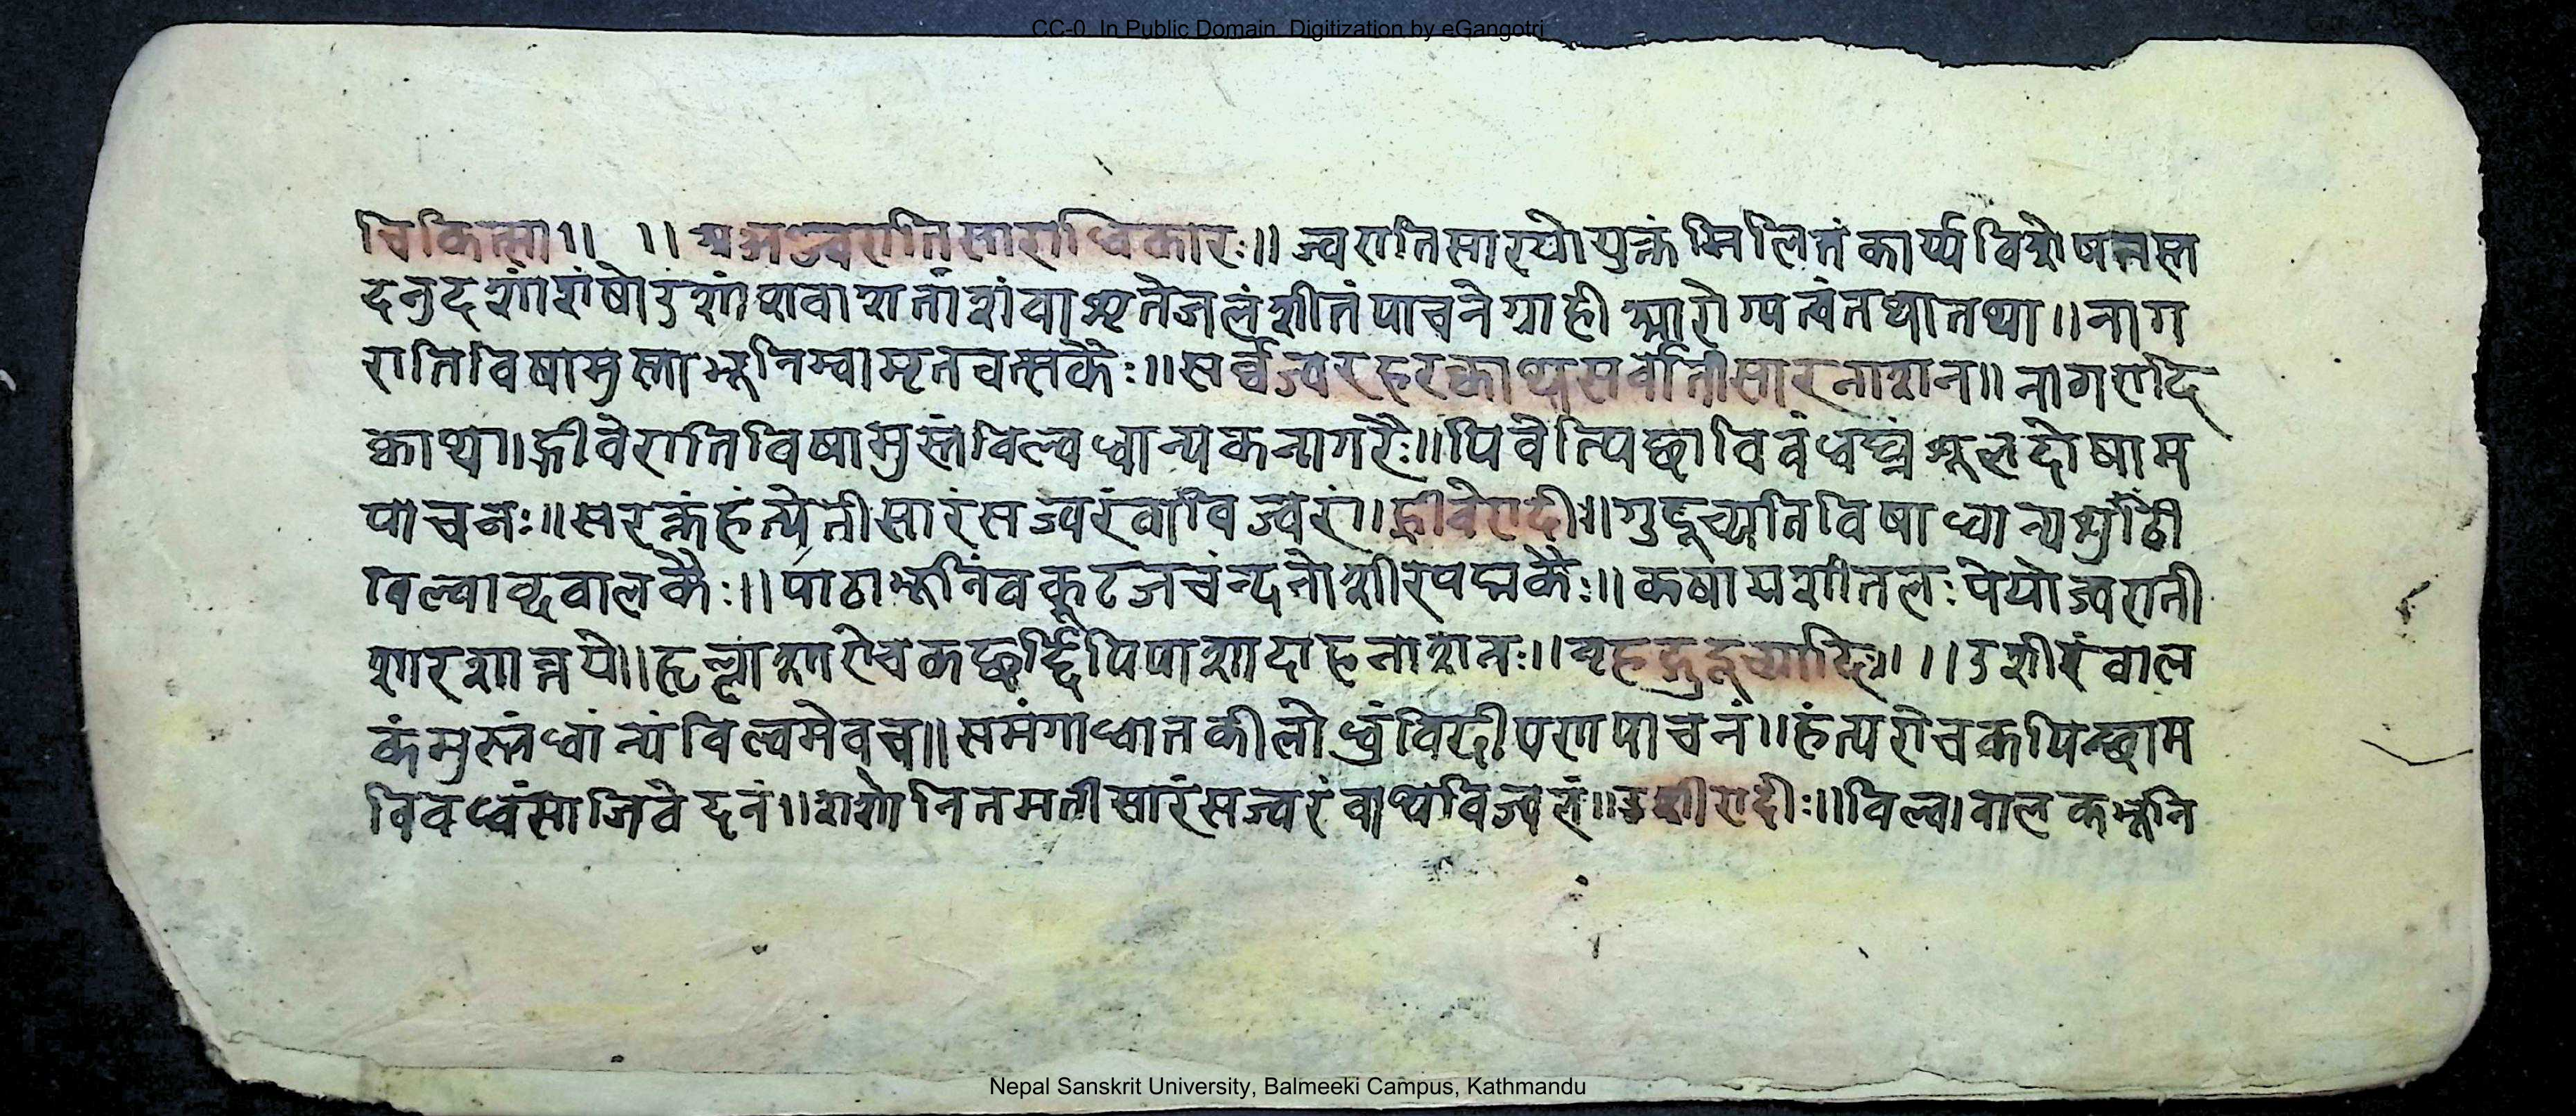 CC-0. In Public Domain. Digitization by eGangotri
चिकित्सा॥ ॥ अथज्वरातिसाराधिकारः॥ ज्वरातिसारयोयुक्तं मिलितं कार्य्यविशेषनस्त
दनुदशांशंषोडशांशवाशतांशंवाशृतेजलंशीतंपाचनेग्राही आरोग्यत्वंतथातथा॥ नाग
रातिविषामुस्ताभूनिम्बामृतवत्सकैः॥ सर्व्वज्वरहरक्वाथसर्वातीसारनाशन॥ नागरादि
क्वाथ॥ ह्रीवेरातिविषामुस्तंविल्वधान्यकनागरैः॥ पिवेत्पिछाविवंधघ्नंशूलदोषाम
पाचनः॥ सरक्तंहंत्येतीसारंसज्वरंवाविज्वरां॥ ह्रीवेरादीः॥ गुडूच्यातिविषाधान्यशुंठी
बिल्वाब्दवालकैः॥ पाठाभूनिंवकूटजचंन्दनोशीरपद्मकैः॥ कषायशीतलःपेयोज्वराती
शारशान्तये॥ हृल्लाशारोचकछर्द्दिपिपाशादाहनाशनः॥ बृहद्गुडूच्यादिः॥ ॥ उशीरंवाल
कंमुस्तंधांन्यंविल्वमेवच॥ समंगाधातकीलोध्रंविदीपणपाचनं॥ हंत्यरोचकपिच्छाम
विवंध्वंसाजिवेदनं॥ शशोनितमतीसारंसज्वरंवाथविज्वलं॥ उशीरादीः॥ विल्व।वालकभूनि
Nepal Sanskrit University, Balmeeki Campus, Kathmandu